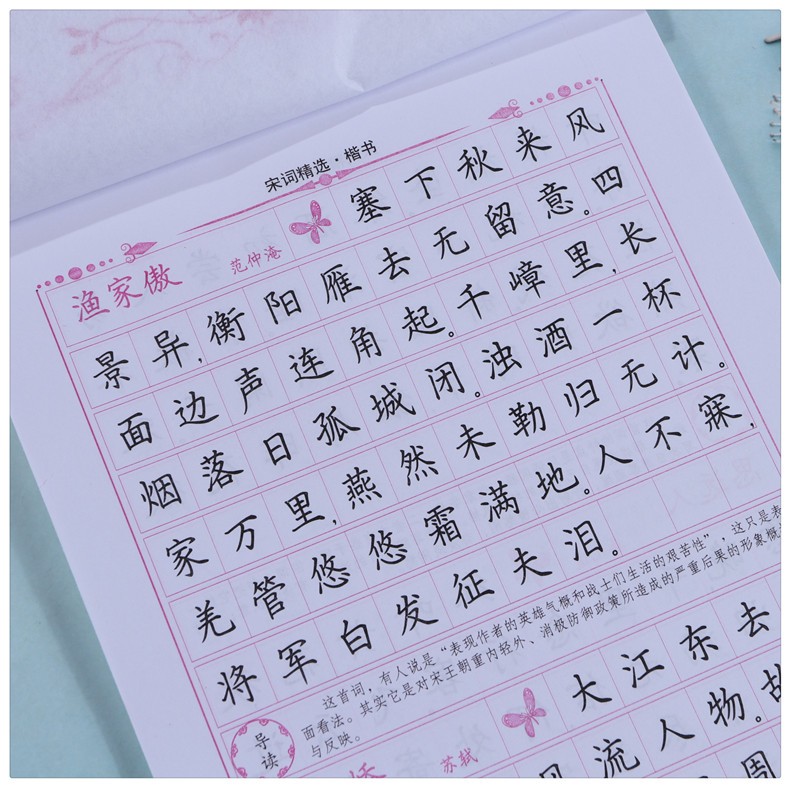 宋词精选·楷书
渔家傲 范仲淹 塞下秋来风
景异,衡阳雁去无留意。四
面边声连角起。千嶂里,长
烟落日孤城闭。浊酒一杯
家万里,燕然未勒归无计。
羌管悠悠霜满地。人不寐,
将军白发征夫泪。
导读
这首词,有人说是“表现作者的英雄气概和战士们生活的艰苦性”,这只是表
面看法。其实它是对宋王朝重内轻外、消极防御政策所造成的严重后果的形象概
与反映。
苏轼 大江东去
流人物。故
周